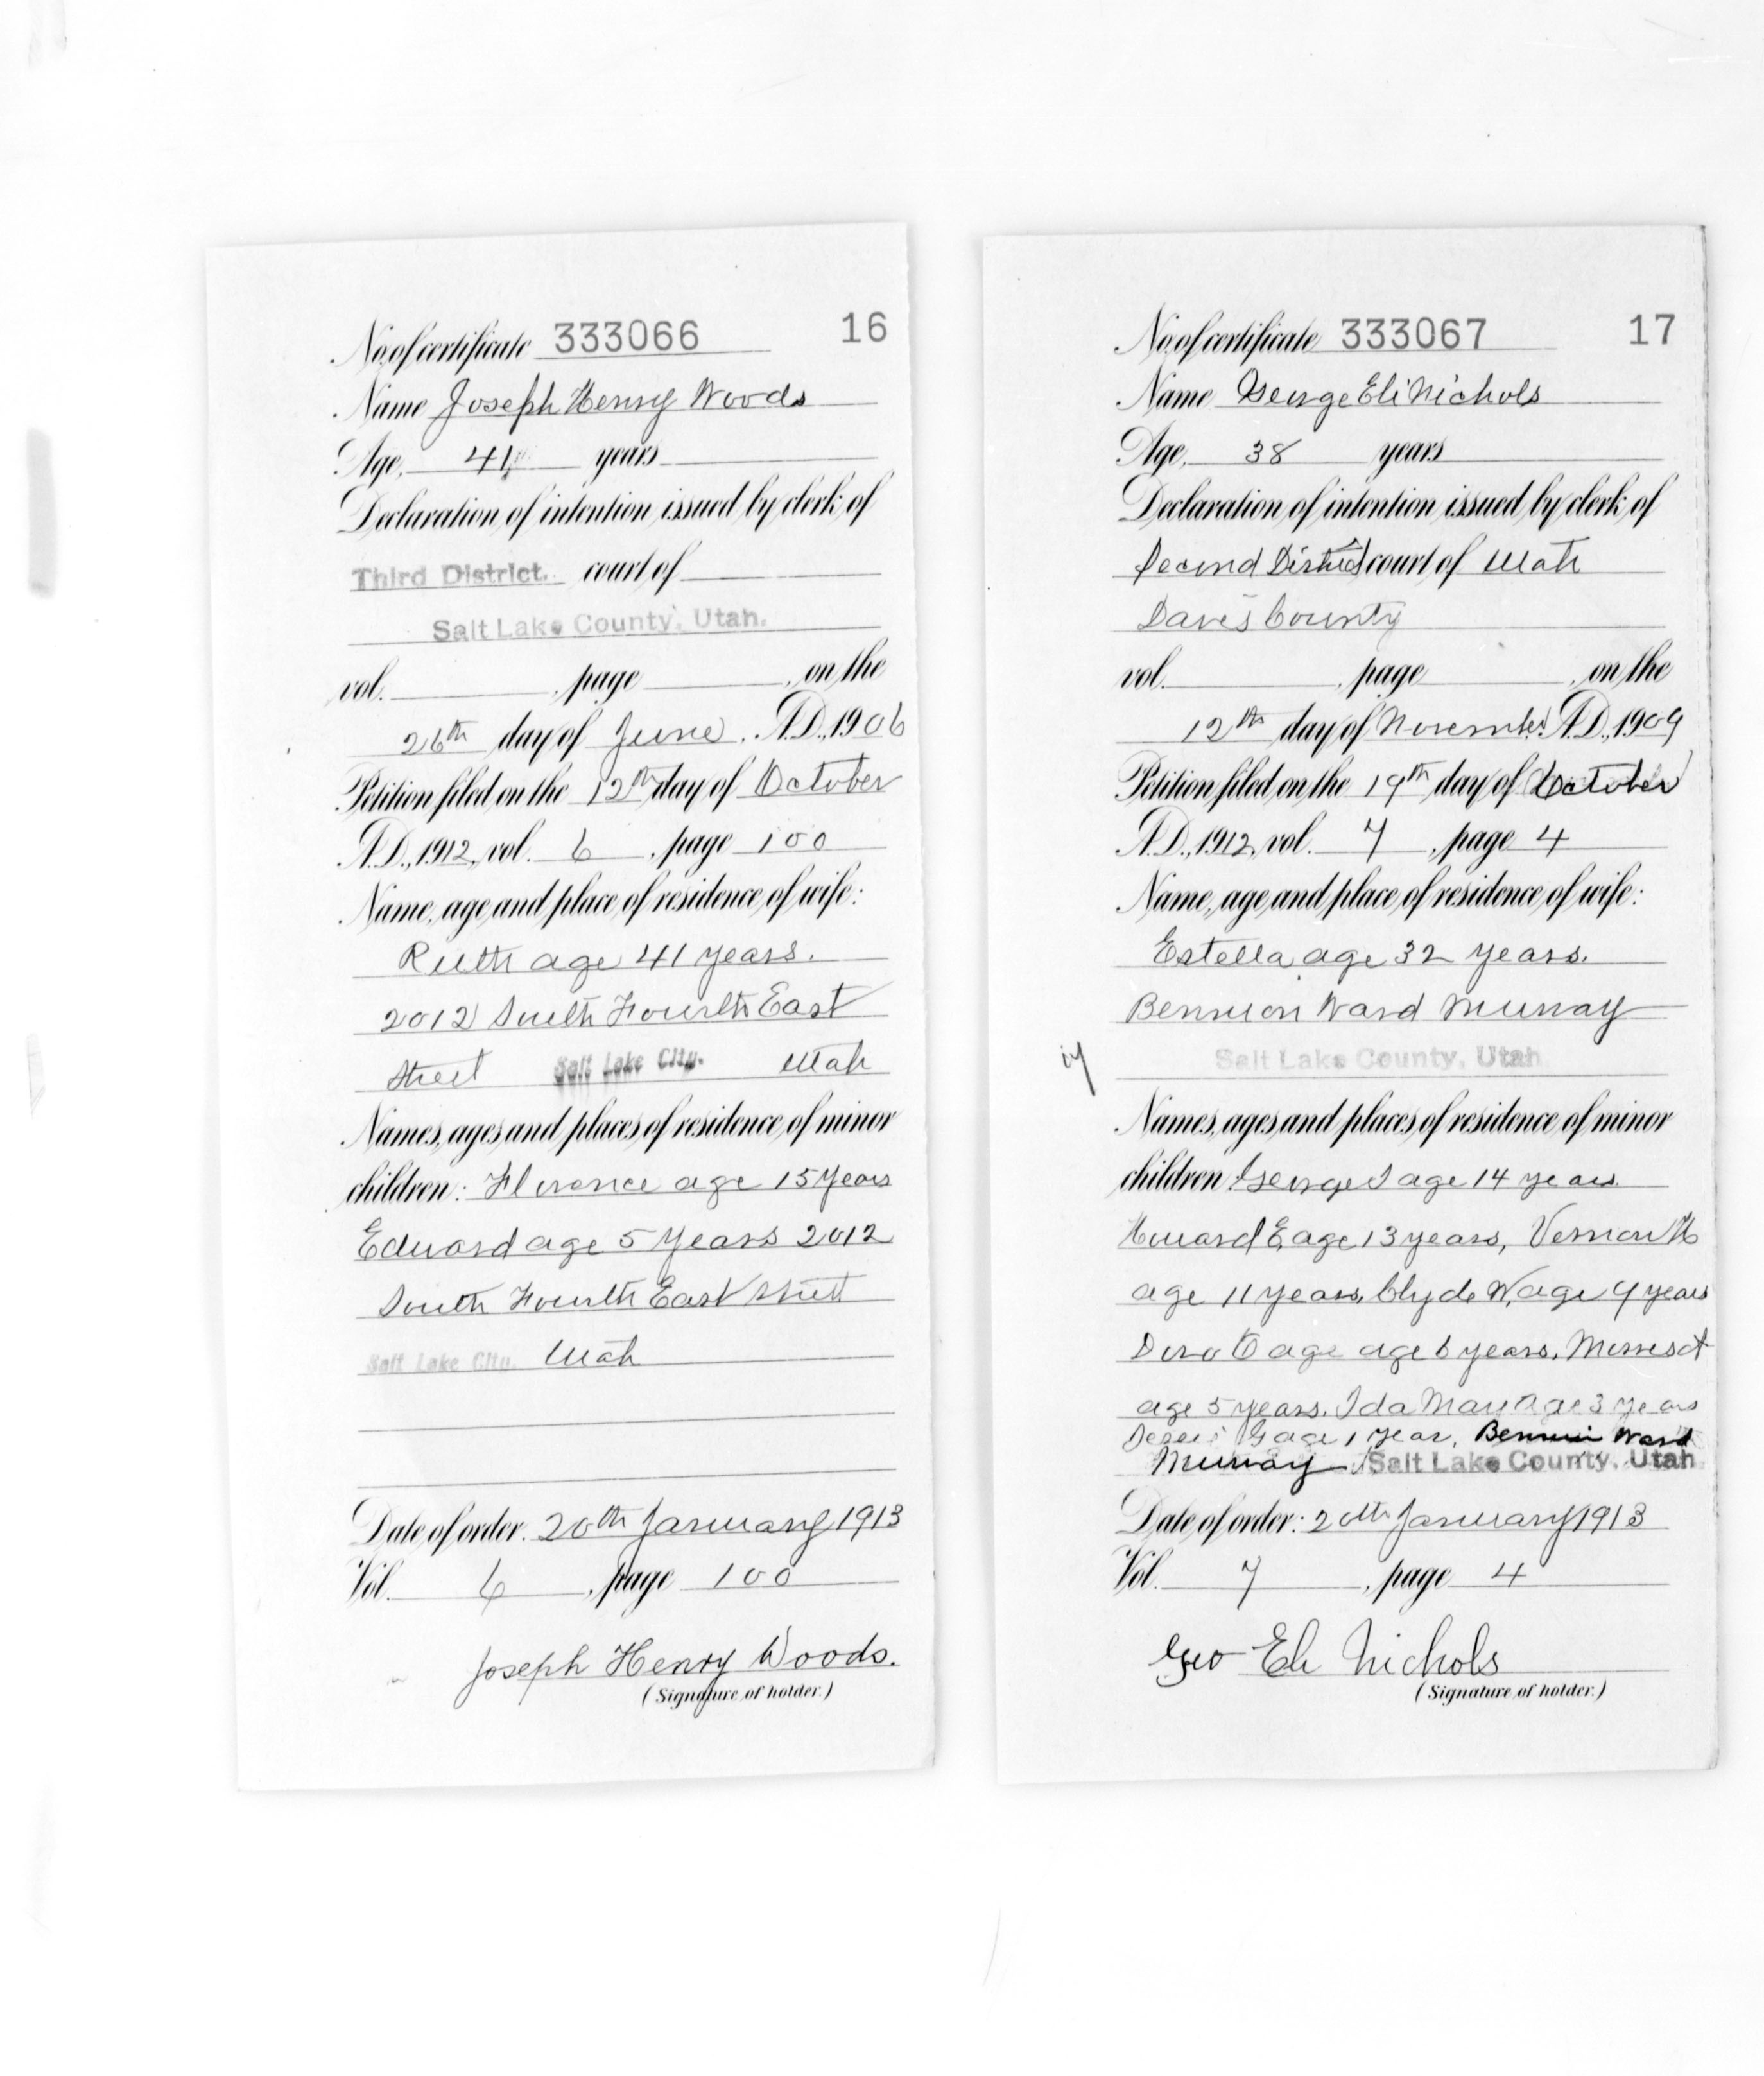 No. of certificate 333066 16
Name Joseph Henry Woods
Age, 41 years
Declaration of intention issued by clerk of
Third District. court of
Salt Lake County, Utah.
vol. , page , on the
26th day of June, A.D., 1906
Petition filed on the 12th day of October
A.D., 1912, vol. 6, page 100
Name, age and place of residence of wife:
Ruth age 41 years.
2012 South Fourth East
Street Salt Lake City. Utah
Names, ages and places of residence of minor
children: Florence age 15 years
Edward age 5 years 2012
South Fourth East Street
Salt Lake City. Utah
Date of order. 20th January 1913
Vol. 6, page 100
Joseph Henry Woods.
(Signature of holder.)
No. of certificate 333067 17
Name George Eli Nichols
Age, 38 years
Declaration of intention issued by clerk of
Second District court of Utah
Davis County
vol. , page , on the
12th day of November A.D., 1909
Petition filed on the 19th day of October
A.D., 1912, vol. 7, page 4
Name, age and place of residence of wife:
Estella age 32 years.
Bennion Ward Murray
Salt Lake County, Utah
Names, ages and places of residence of minor
children: George age 14 years.
Howard E, age 13 years, Vernon
age 11 years, Clyde W, age 9 years
O age age 6 years.
age 5 years. Ida May age 3 years
G age 1 year, Bennion Ward
Murray Salt Lake County, Utah
Date of order: 20th January 1913
Vol. 7, page 4
Geo Eli Nichols
(Signature of holder.)